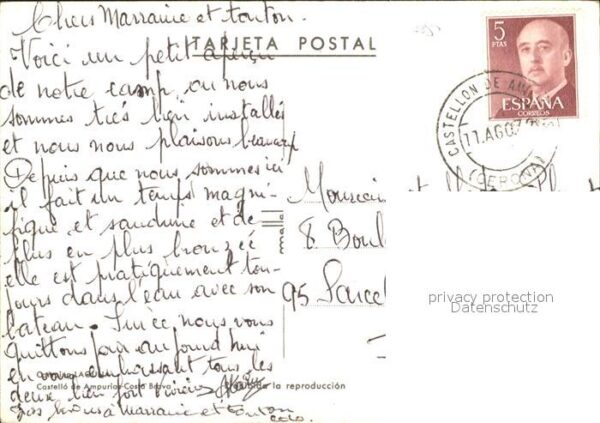 Chers Marraine et tonton.
TARJETA POSTAL
Voici un petit aperçu
de notre camp, ou nous
sommes très bien installés
et nous nous plaisons beaucoup
Depuis que nous sommes ici
il fait un temps magni-
fique et sandrine est de
plus en plus bronzée
elle est pratiquement tou-
jours dans l'eau avec son
bateau. Sur ce nous vous
quittons pour aujourd'hui
en vous embrassant tous les
deux bien fort
Gros bisous à Marraine et tonton
Castelló de Ampurias-Costa Brava
la reproducción
5
PTAS
ESPAÑA
CORREOS
CASTELLON DE AM
11.AGO.7
(GERONA)
Monsieur et
8 Boul
95 Sarcel
privacy protection
Datenschutz